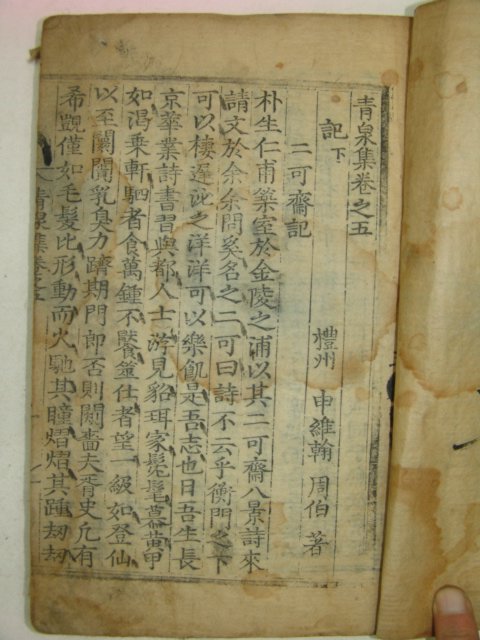 青泉集卷之五
禮州 申維翰 周伯 著
記下
二可齋記
朴生仁甫築室於金陵之浦以其二可齋八景詩來
請文於余余問奚名之二可曰詩不云乎衡門之下
可以棲遲泌之洋洋可以樂飢是吾志也曰吾生長
京華業詩書習與都人士游見貂珥家髧髦慕黃甲
如渴乘軒駟者食萬鍾不饜筮仕者望一級如登仙
以至闤闠乳臭力躋期門郎否則閼嗇夫胥史凢有
希覬僅如毛髮比形動而火馳其瞳熠熠其踵刼刼
青泉集卷之五